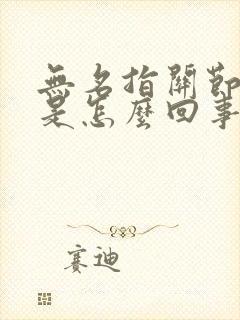 無名指關節
是怎麼回事
賽迪